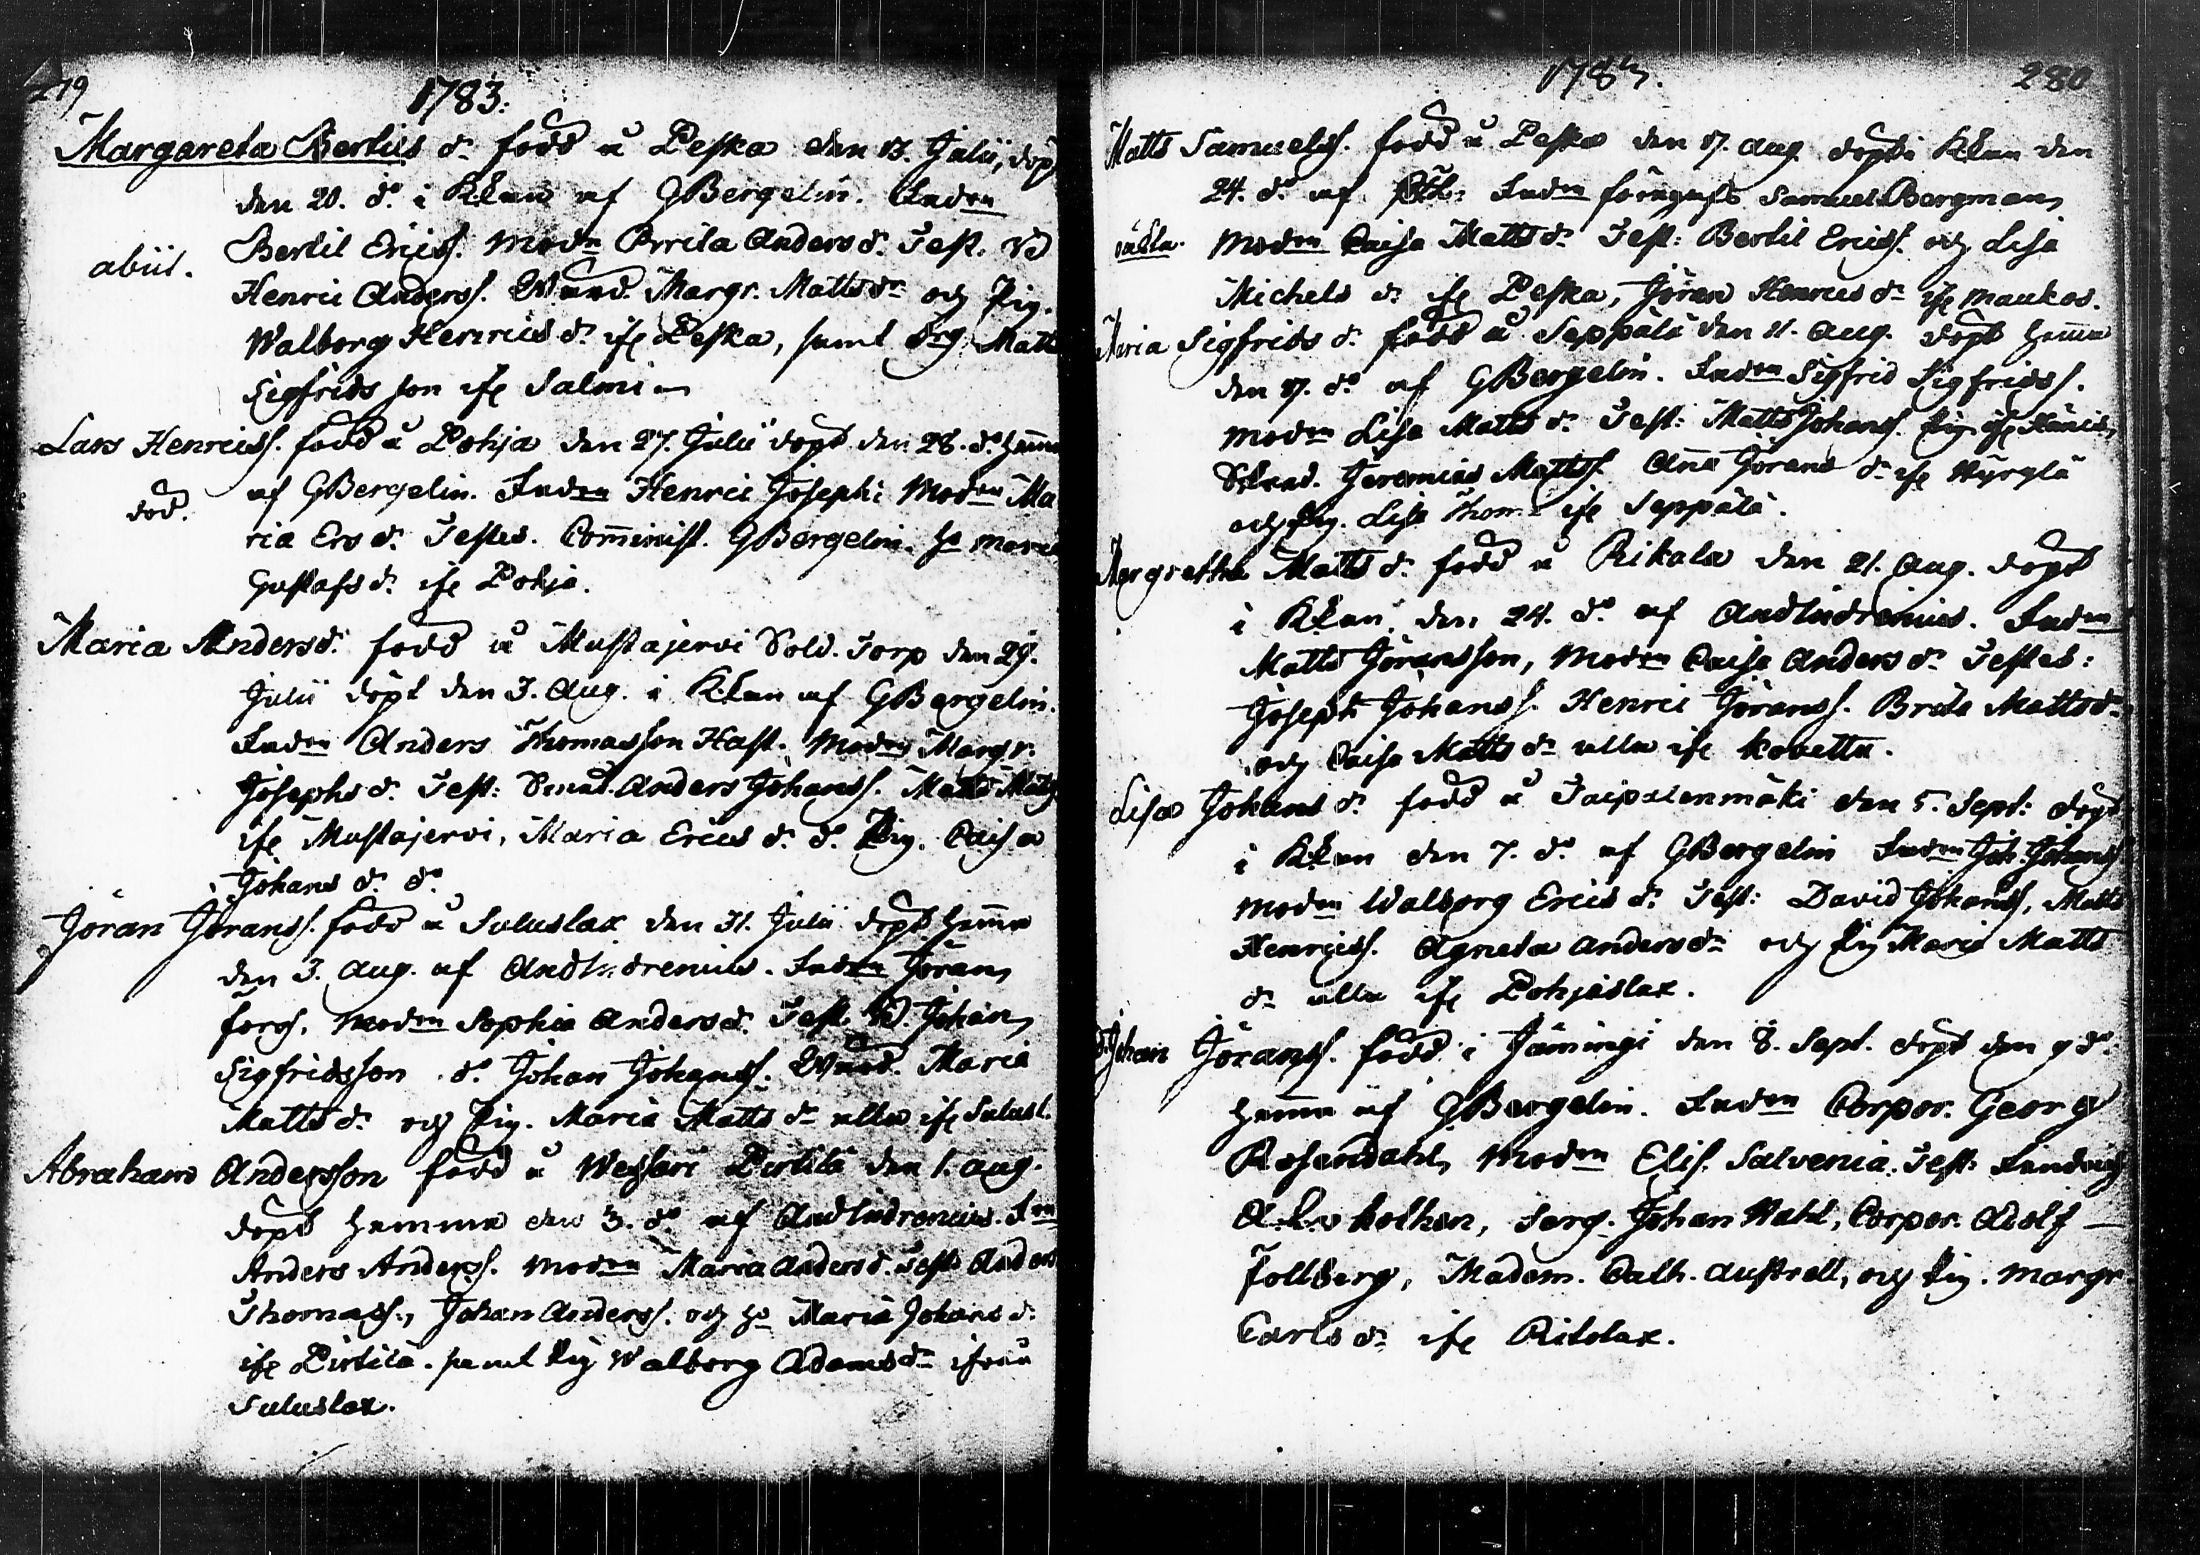 279
1783.
Margareta Bertils d. född å Peska den 13. Julii, döp
den 20. d:o i Kkan af GBergelin. Fadren
Bertil Ericss. Modn Brita Anders d. Test. Vd
abiit.
Henric Anderss. Margr. Matts dr och Pig.
Walborg Henrics dr ifr Peska, samt Drg Matts
Sigfrids son ifr Salmi
Lars Henricss. född å Pohja den 27. Julii döpt den 28. d:o hema
af GBergelin. Fadren Henric Josephi Modren Ma
död.
ria Ers dr. Testes. Cominist. GBergelin. H:u Maria
Gustafs dr ifr Pohja.
Maria Anders dr. född å Mustajervi Sold. Torp den 29.
Julii döpt den 3. Aug. i Kkan af GBergelin.
Fadren Anders Thomasson Hast. Modren Margr.
Josephs dr. Test: Anders Johanss. Matts Matss
ifr Mustajervi, Maria Erics dr. d:o Pig. Caisa
Johans dr. d:o
Jöran Jöranss. född å Suluslax den 31. Julii döpt hema
den 3. Aug. af AndLudrenius. Fadren Jöran
Modren Sophia Anders dr. Test. Vd. Johan
Sigfridsson d:o Johan Johanss. Maria
Matts dr och Pig. Maria Matts dr alla ifr Sulusl.
Abraham Andersson född å Pirtilä den 1. Aug.
döpt hemma den 3. d:o af AndLudrenius. Fren
Anders Anderss. Modren Maria Anders d. Test: Anders
Thomass., Johan Anderss. och h:u Maria Johans d.
ifr Pirtilä. samt Pig Walborg Adams dr ifrån
Suluslax.
1783.
280
Matts Samuelss. född å Peska den 17. Aug. döpt i Kkan den
24. d:o af Fadren Samuel Bergman
oäkta.
Modren Caisa Matts dr Test: Bertil Ericss. och Lisa
Michels dr ifr Peska, Jöran Henrics dr ifr Maukos.
Maria Sigfrids dr född å Seppälä den 11. Aug. döpt hema
den 17. d:o af GBergelin. Fadren Sigfrid Sigfridss.
Modren Lisa Matts dr Test: Matts Johanss.
Jeremias Mattss. Ana Jörans dr ifr Hyrylä
och Pig. Lisa Thom. ifr Seppälä.
Margretha Matts d. född å Rikala den 21. Aug. döpt
i Kkan den 24. d:o af AndLudrenius. Fadren
Matts Jöransson, Modren Caisa Anders dr Testes:
Joseph Johanss. Henric Jöranss. Brita Matts dr.
och Caisa Matts dr alla ifr Kouetta.
Lisa Johans dr född å Taipalenmäki den 5. Sept: döpt
i Kkan den 7. d:o af GBergelin Fadren Joh. Johans
Modren Walborg Erics dr. Test: David Johanss, Matts
Henricss. Agneta Anders dr och Pig Maria Matts
dr alla ifr Pohjaslax.
Johan Jöranss. född i Jäningi den 8. Sept. döpt den 9 d:o
hema af GBergelin. Fadren Corpor. Georg
Rosendahl, Modren Elis. Salvenia. Test:
Serg. Johan Wahl, Corpor. Adolf
Follberg, Madem. Cath. Austrell, och Pig. Margr
Carls dr ifr Ritolax.